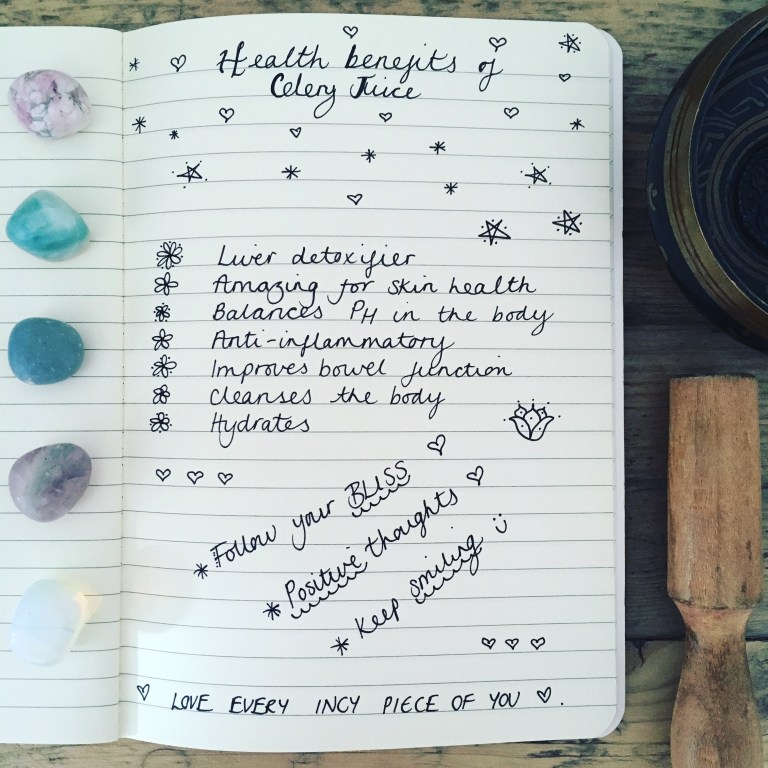 Health benefits of
Celery Juice
Liver detoxifier
Amazing for skin health
Balances PH in the body
Anti-inflammatory
Improves bowel function
Cleanses the body
Hydrates
* Follow your BLISS
* Positive thoughts
* Keep smiling :)
LOVE EVERY INCY PIECE OF YOU ♡.